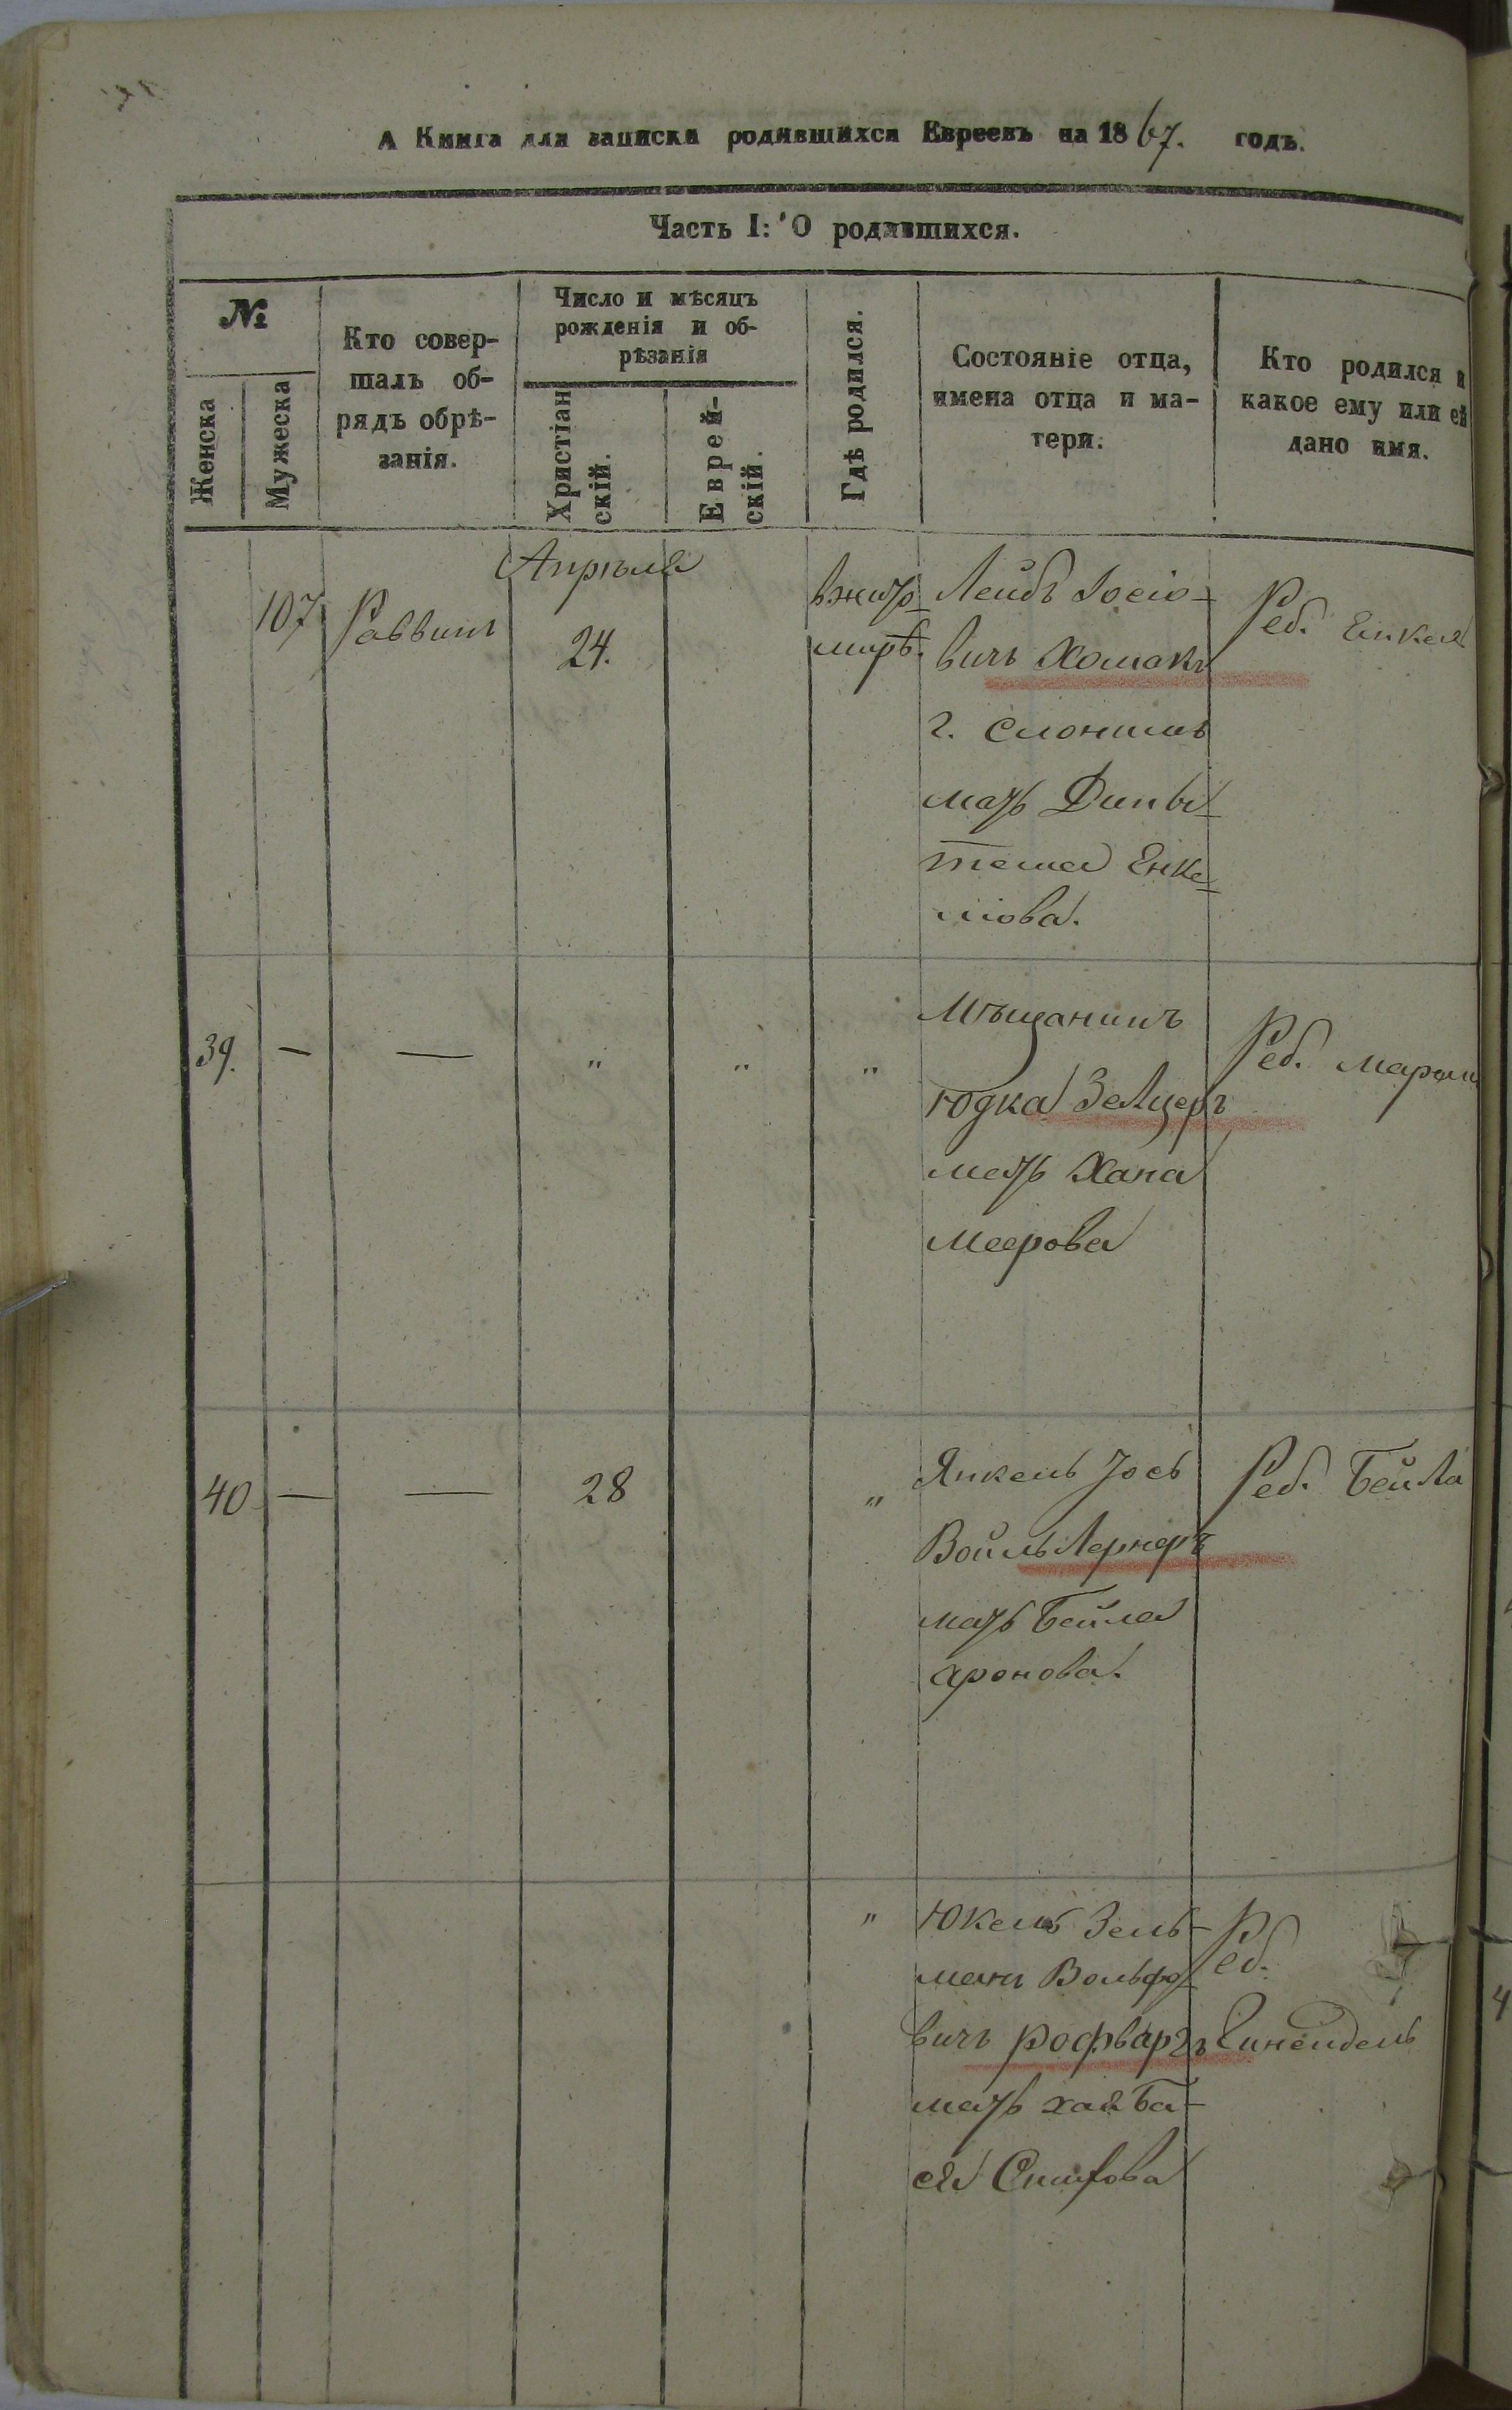 А Книга для записки родившихся Евреевъ на 1867. годъ.
Часть I: О родившихся.
№
Женска
Мужеска
Кто совер-
шалъ об-
рядъ обрѣ-
занія.
Число и мѣсяцъ
рожденія и об-
рѣзанія
Христіан
скій.
Еврей-
скій.
Гдѣ родился.
Состояніе отца,
имена отца и ма-
тери.
Кто родился и
какое ему или ей
дано имя.
Апрѣля
107
Раввинъ
24.
Вжито-
мирѣ.
Лейбъ Іосіо-
вичъ Хомакъ
г. Слонима
мать
Енке-
ліова.
Реб. Енкел
39.
—
—
"
"
"
Мѣщанинъ
Юдка Зелцеръ
мать Хана
Меерова
Реб.
40
—
—
28
"
Янкель Іось
Лернеръ
мать Бейла
Аронова.
Реб. Бейла
"
Юкель Зель-
манъ Вольфо-
вичъ Рофваргъ
мать Хая Ба-
ся
Реб.